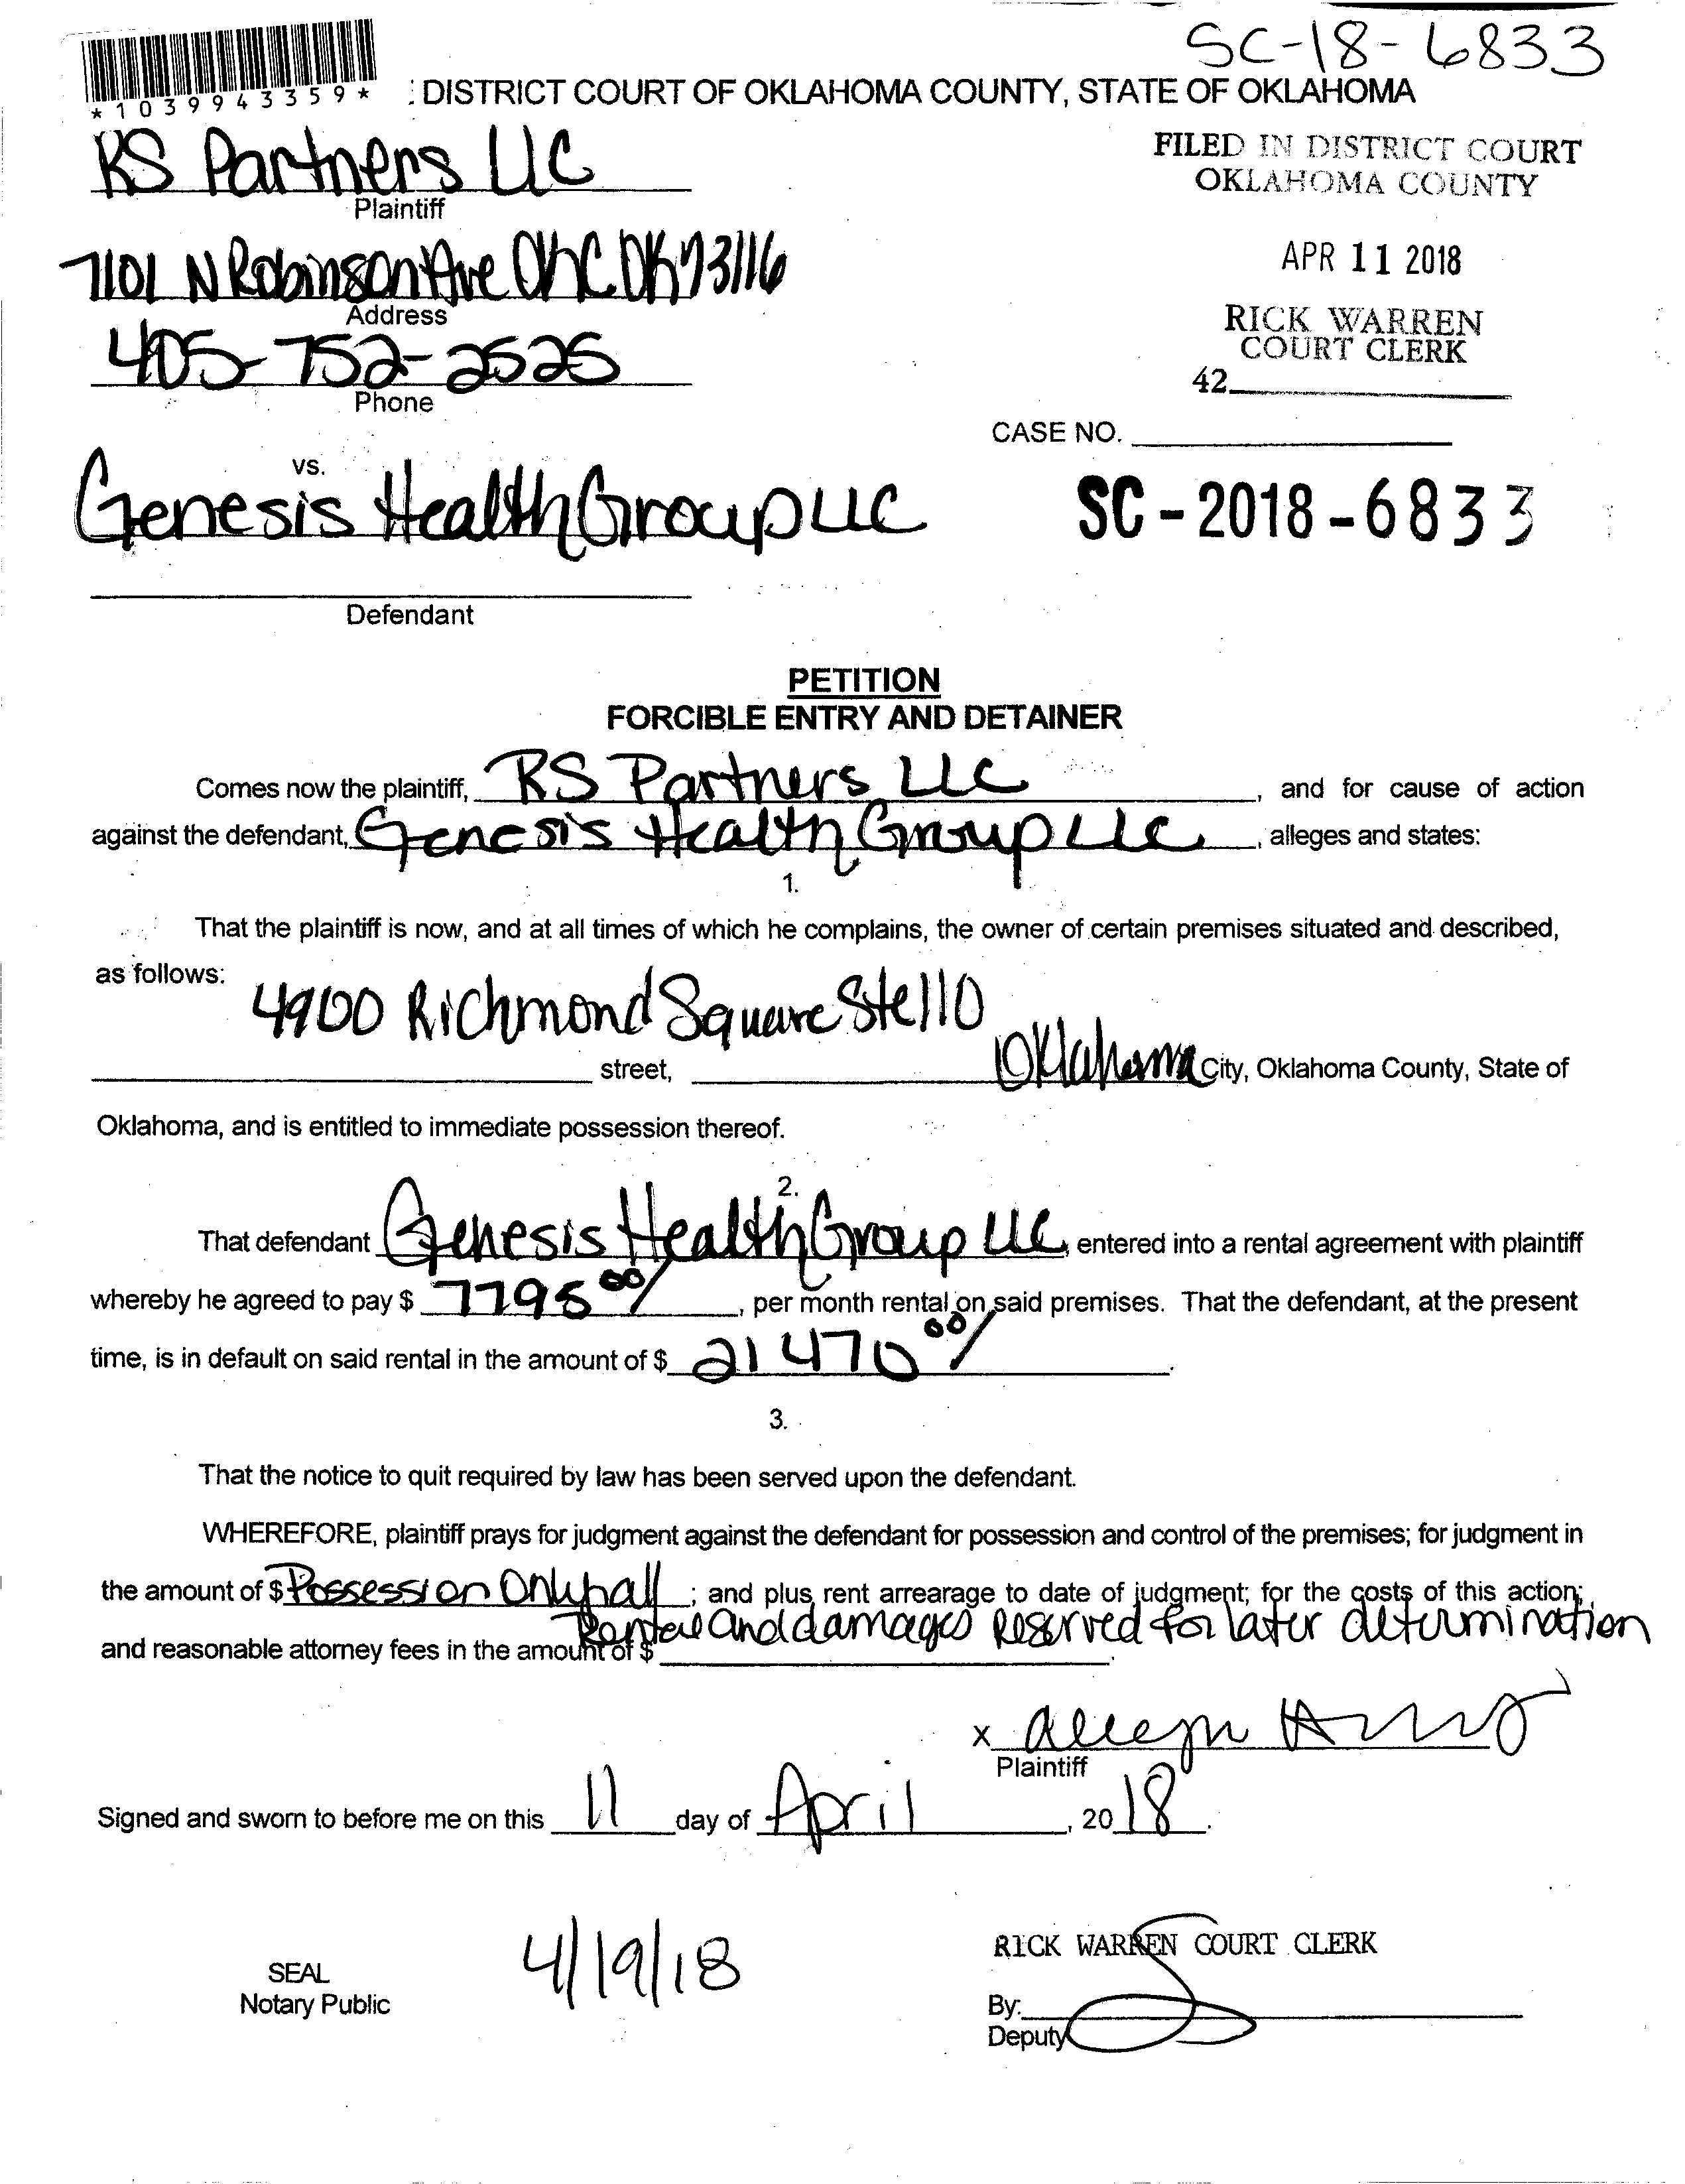 SC-18-6833
*1039943359*
: DISTRICT COURT OF OKLAHOMA COUNTY, STATE OF OKLAHOMA
RS Partners LLC
Plaintiff
FILED IN DISTRICT COURT
OKLAHOMA COUNTY
7101 N Robinson Ave OKC OK 73116
Address
APR 11 2018
405-752-2525
Phone
RICK WARREN
COURT CLERK
42
CASE NO.
vs.
Genesis Health Group LLC
SC-2018-6833
Defendant
PETITION
FORCIBLE ENTRY AND DETAINER
Comes now the plaintiff, RS Partners LLC, and for cause of action
against the defendant, Genesis Health Group LLC, alleges and states:
1.
That the plaintiff is now, and at all times of which he complains, the owner of certain premises situated and described,
as follows:
4900 Richmond Square Ste 110
street, Oklahoma City, Oklahoma County, State of
Oklahoma, and is entitled to immediate possession thereof.
2.
That defendant Genesis Health Group LLC, entered into a rental agreement with plaintiff
whereby he agreed to pay $ 7795 00/, per month rental on said premises. That the defendant, at the present
time, is in default on said rental in the amount of $ 21470 00/.
3.
That the notice to quit required by law has been served upon the defendant.
WHEREFORE, plaintiff prays for judgment against the defendant for possession and control of the premises; for judgment in
the amount of $ Possession Only all; and plus rent arrearage to date of judgment; for the costs of this action;
Rental and damages Reserved for later determination
and reasonable attorney fees in the amount of $ .
x
Plaintiff
Signed and sworn to before me on this 11 day of April, 2018.
SEAL
Notary Public
4/19/18
RICK WARREN COURT CLERK
By:
Deputy